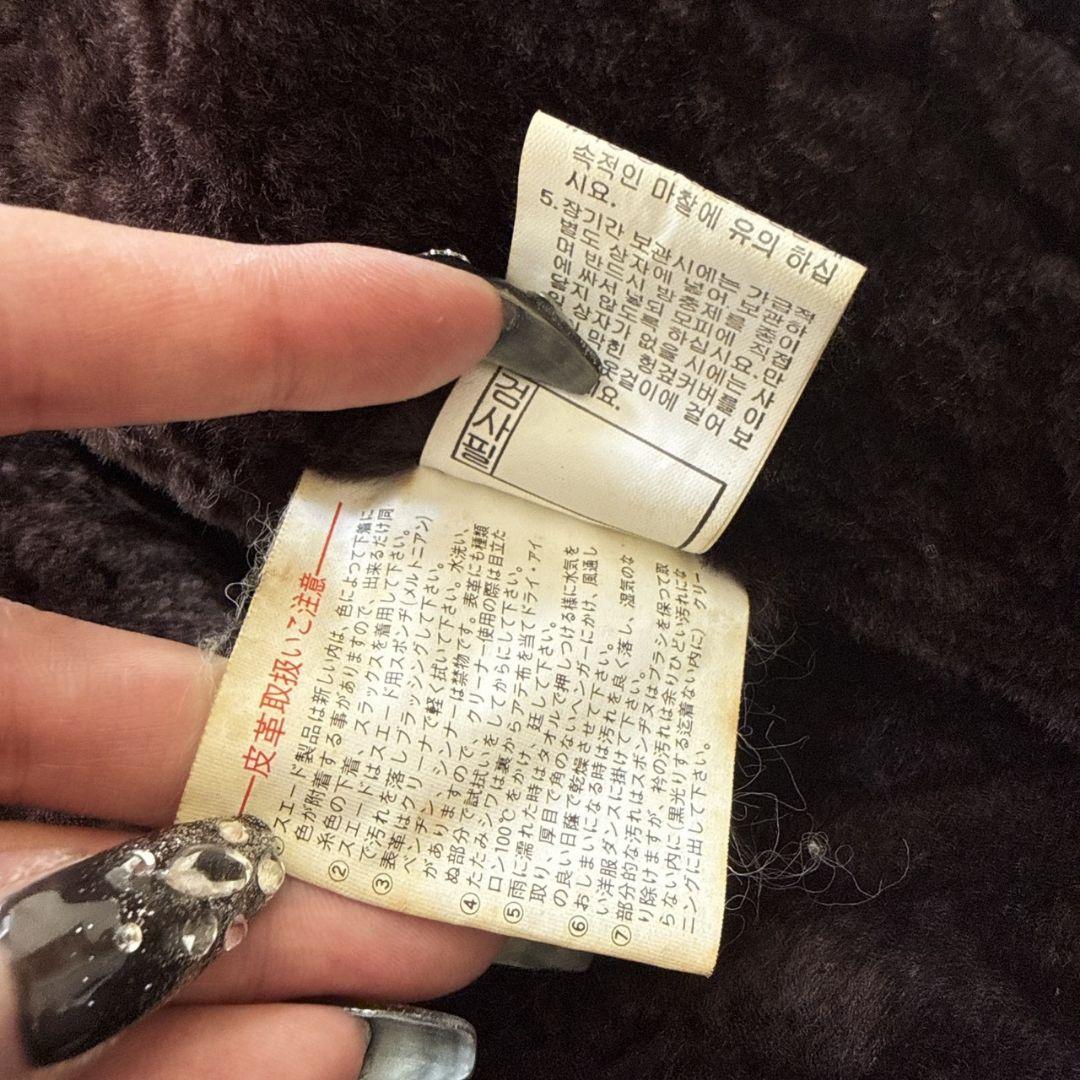 속적인 마찰에 유의 하십
시요.
5. 장기간 보관시에는 가급적
별도 상자에 넣어 보관하
며 반드시 방충제를 종이
에 싸서 모피에 직접
닿지 않도록 하십시요. 만
상자가 요할 시에는 사
막힌 형겊커버를
옷걸이에 걸어 보
요.
검사필
皮革取扱いご注意
スエード製品は新しい内は、色によって下着に
色が附着する事がありますので、出来るだけ同
糸色の下着、スラックスを着用して下さい。
② スエードはスエード用スポンヂ(メルトニアン)
で汚れを落しブラッシングして下さい。
③ 表革はクリーナーで軽く拭いて下さい。水洗い、
ベンヂン、シンナーは禁物です。表革にも種類
がありますので、クリーナー使用の際は目立た
ぬ部分で試拭いをしてからにして下さい。
④ たたみジワは裏からアテ布を当てドライ・アイ
ロン100℃をかけ、延して下さい。
⑤ 雨に濡れた時はタオルで押しつける様に水気を
取り、厚目で角のないハンガーにかけ、風通し
の良い日蔭で乾燥させて下さい。
⑥ おしまいになる時は汚れを良く落し、湿気のな
い洋服ダンスに掛けて下さい。
⑦ 部分的な汚れはスポンヂ又はブラシを保って取
り除けますが、衿の汚れは余りひどい汚れにな
らない内に(黒光りする迄着ない内に)クリー
ニングに出して下さい。